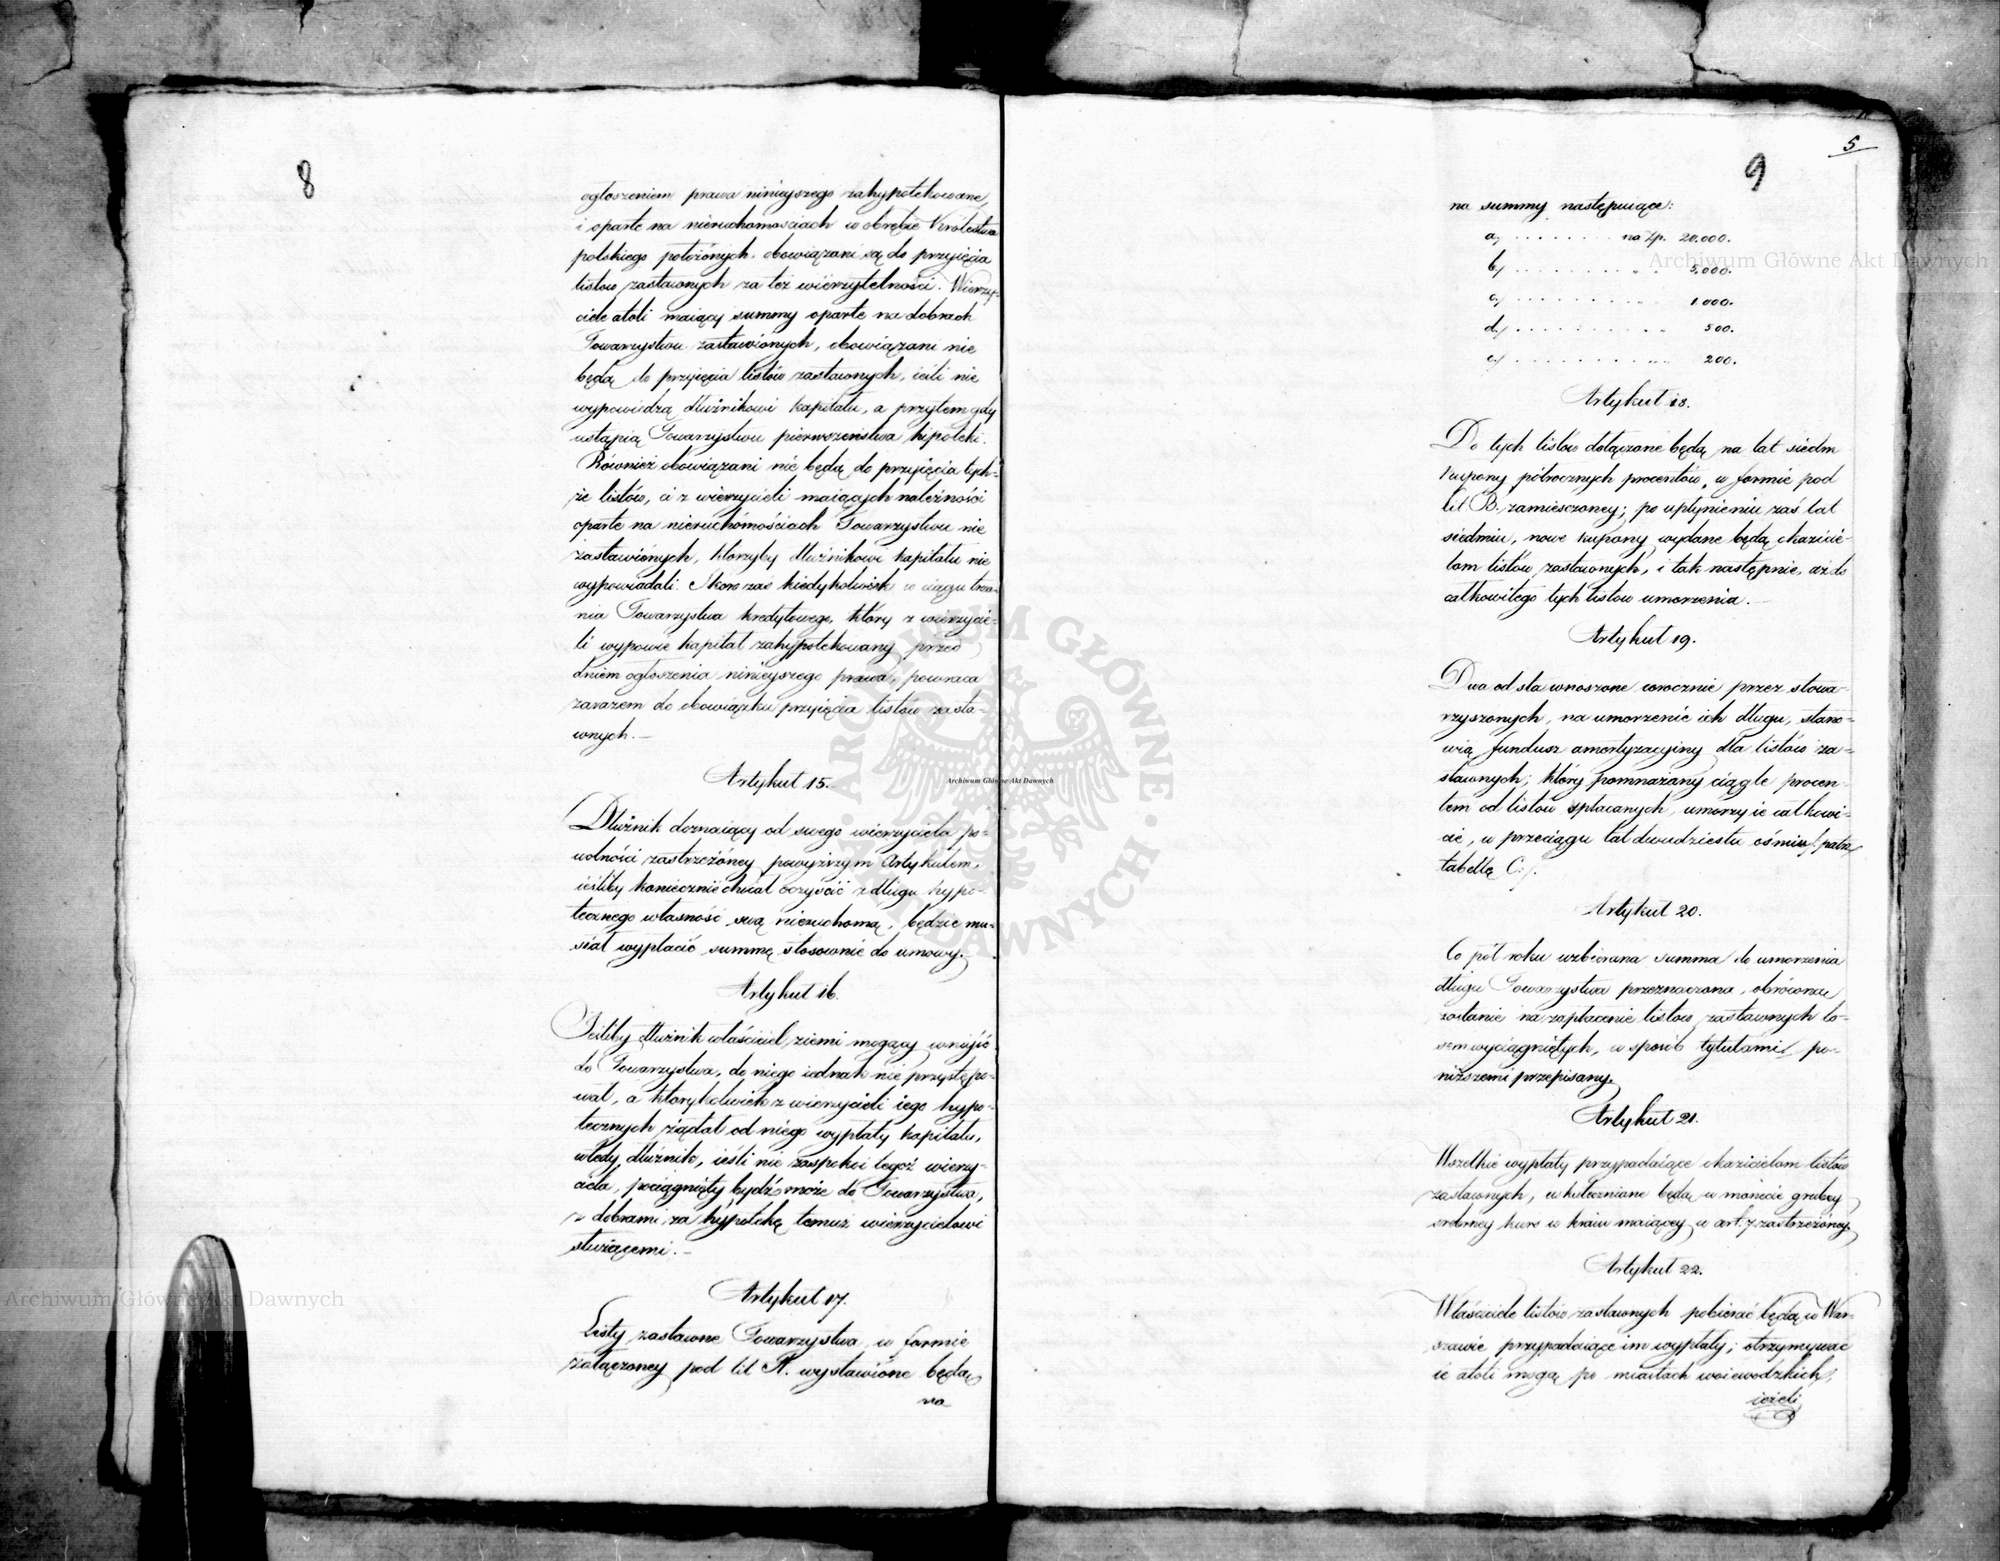 8
ogłoszeniem prawa ninieyszego zahypotekowane,
i oparte na nieruchomościach w obrębie Królestwa
polskiego położonych, obowiązani są do przyięcia
listów zastawnych za też wierzytelności. Wierzy-
ciele atoli maiący summy oparte na dobrach
Towarzystwu zastawionych, obowiązani nie
będą do przyięcia listów zastawnych, ieśli nie
wypowiedzą dłużnikowi kapitału, a przytem gdy
ustąpią Towarzystwu pierwszeństwa hipoteki.
Również obowiązani nie będą do przyięcia tych-
że listów, ci z wierzycieli maiących należności
oparte na nieruchomościach Towarzystwu nie
zastawionych, którzyby dłużnikowi kapitału nie
wypowiadali. Skoro zaś kiedykolwiek w ciągu trwa-
nia Towarzystwa kredytowego, który z wierzycie-
li wypowie kapitał zahypotekowany przed
dniem ogłoszenia ninieyszego prawa, powraca
zarazem do obowiązku przyięcia listów zasta-
wnych.—
Artykuł 15.
Dłużnik doznaiący od swego wierzyciela po-
wolności zastrzeżóney powyższym Artykułem,
ieśliby koniecznie chciał oczyścić z długu hypo-
tecznego własność swą nieruchomą, będzie mu-
siał wypłacić summę stosownie do umowy.
Artykuł 16.
Jeśliby dłużnik właściciel ziemi mogący wnijść
do Towarzystwa, do niego iednak nie przystępo-
wał, a którykolwiek z wierzycieli iego hypo-
tecznych żądał od niego wypłaty kapitału,
wtedy dłużnik, ieśli nie zaspokoi tegoż wierzy-
ciela, pociągnięty bydź może do Towarzystwa,
z dobrami za hypotekę temuż wierzycielowi
służącemi.—
Artykuł 17.
Listy zastawne Towarzystwa, w formie
załączoney pod lit A. wystawione będą
na
5
9
na summy następuiące:
a, . . . . . . . . na Zp. 20.000.
b, . . . . . . . . . „ 5,000.
c, . . . . . . . . . „ 1000.
d, . . . . . . . . . „ 500.
e, . . . . . . . . . „ 200.
Artykuł 18.
Do tych listów dołączone będą na lat siedm
kupony półrocznych procentów, w formie pod
lit B. zamiesczoney; po upłynieniu zaś lat
siedmiu, nowe kupony wydane będą okazicie-
lom listów zastawnych, i tak następnie, aż do
całkowitego tych listów umorzenia.—
Artykuł 19.
Dwa od sta wnoszone corocznie przez stowa-
rzyszonych, na umorzenie ich długu, stano-
wią fundusz amortyzacyiny dla listów za-
stawnych; który pomnażany ciągle procen-
tem od listów spłacanych, umorzy ie całkowi-
cie, w przeciągu lat dwudziestu ośmiu /: patrz
tabellę C:/.
Artykuł 20.
Co pół roku uzbierana summa do umorzenia
długu Towarzystwa przeznaczona, obrócona
zostanie na zapłacenie listów zastawnych lo-
sem wyciągniętych, w sposób tytułami po-
niższemi przepisany.
Artykuł 21.
Wszelkie wypłaty przypadaiące okazicielom listów
zastawnych, uskuteczniane będą w monecie grubey
srebrney kurs w kraiu maiącey w art. 7 zastrzeżóney.
Artykuł 22.
Właściciele listów zastawnych pobierać będą w War-
szawie przypadaiące im wypłaty; otrzymywać
ie atoli mogą po miastach woiewodzkich,
ieżeli
Archiwum Główne Akt Dawnych
Archiwum Główne Akt Dawnych
Archiwum Główne Akt Dawnych
ARCHIWUM GŁÓWNE AKT DAWNYCH